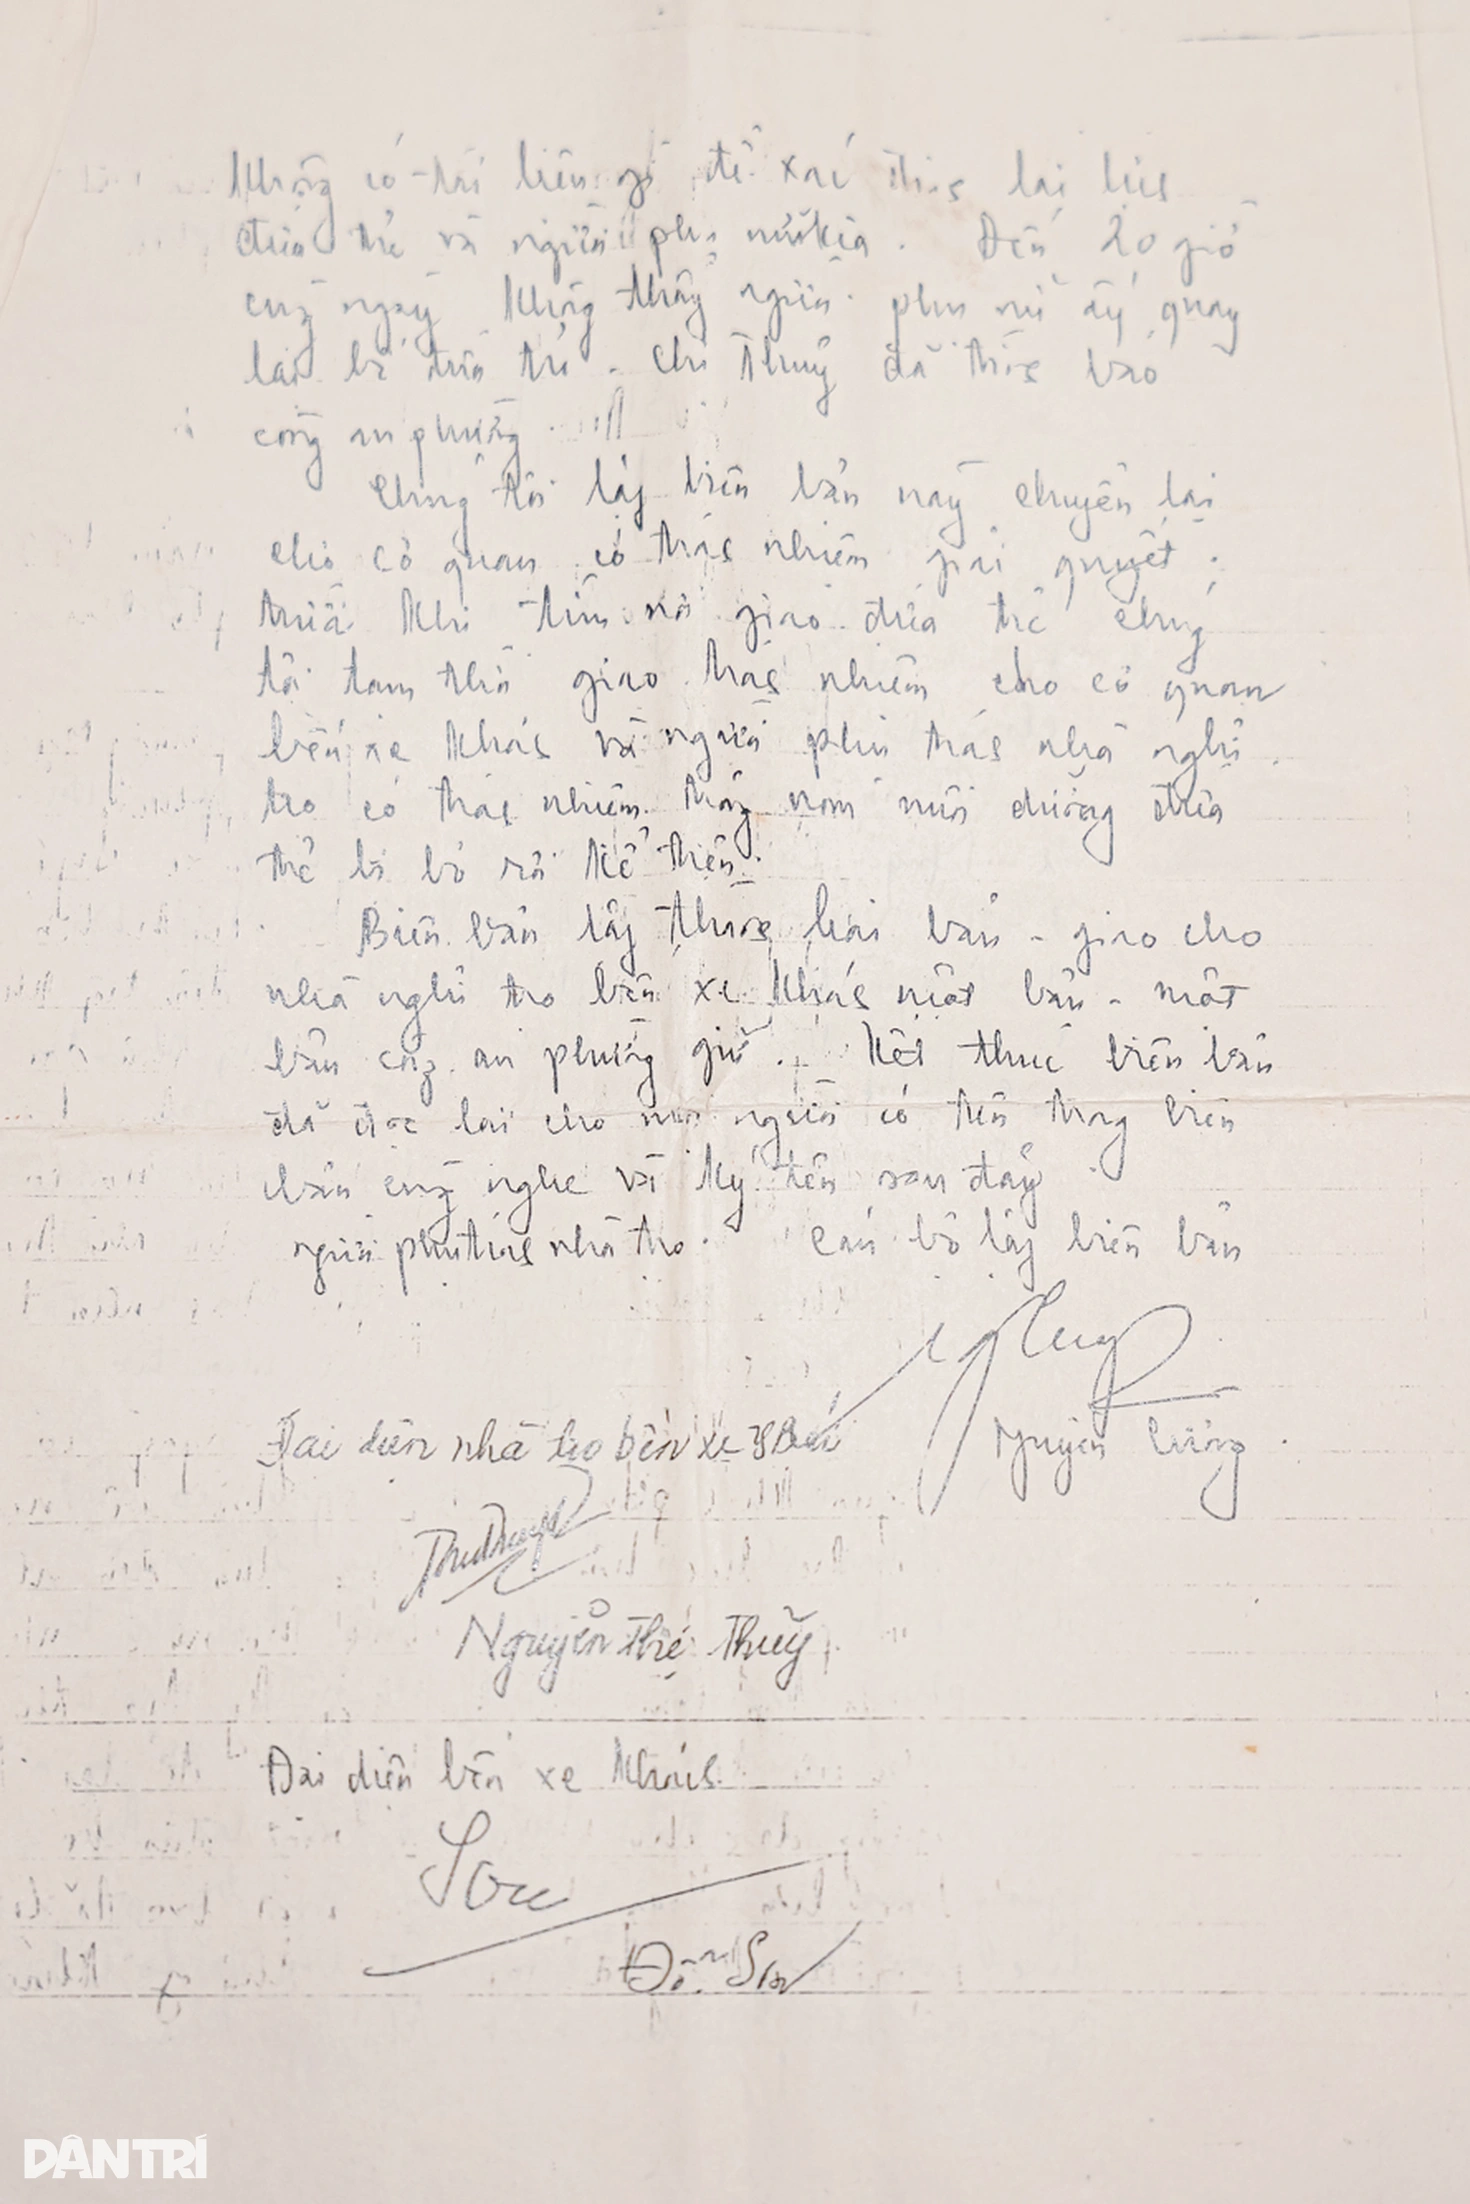 không có tài liệu gì để xác thực lai lịch
đứa trẻ và người phụ nữ kia. Đến 20 giờ
cùng ngày không thấy người phụ nữ ấy quay
lại bế đứa trẻ. Chị Thuỷ đã trực báo
công an phường.
Chúng tôi lập biên bản này chuyển lại
cho cơ quan có trách nhiệm giải quyết.
trước khi tìm nơi giao đứa trẻ chúng
tôi tạm thời giao trách nhiệm cho cơ quan
bến xe khách và người phụ trách nhà nghỉ
trọ có trách nhiệm trông nom nuôi dưỡng đứa
trẻ bị bỏ rơi kể trên.
Biên bản lập thành hai bản - giao cho
nhà nghỉ trọ bến xe khách một bản - một
bản công an phường giữ. Kết thúc biên bản
đã đọc lại cho mọi người có tên trong biên
bản cùng nghe và ký tên sau đây
người phụ trách nhà trọ. Cán bộ lập biên bản
Đại diện nhà trọ bến xe Y Bái
Nguyễn Cường.
Nguyễn Thị Thuỷ
Đại diện bến xe khách.
Sơn
Đỗ Sơn
DÂN TRÍ